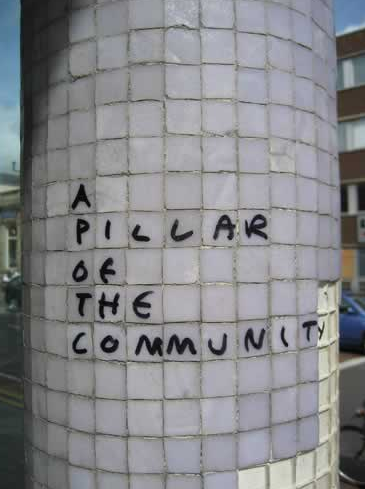 A
PILLAR
OF
THE
COMMUNITY